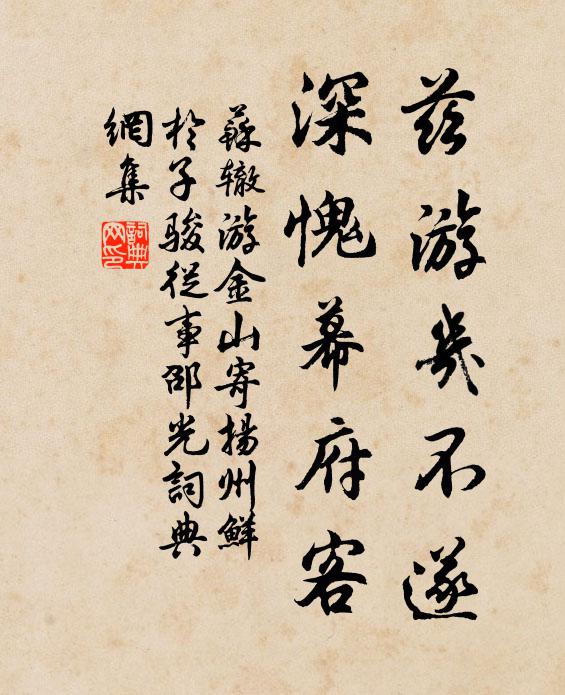 茲游幾不遂
深愧幕府客
蘇轍游金山寄揚州鮮
於子駿從事邵光詞典
網集
詞典網印